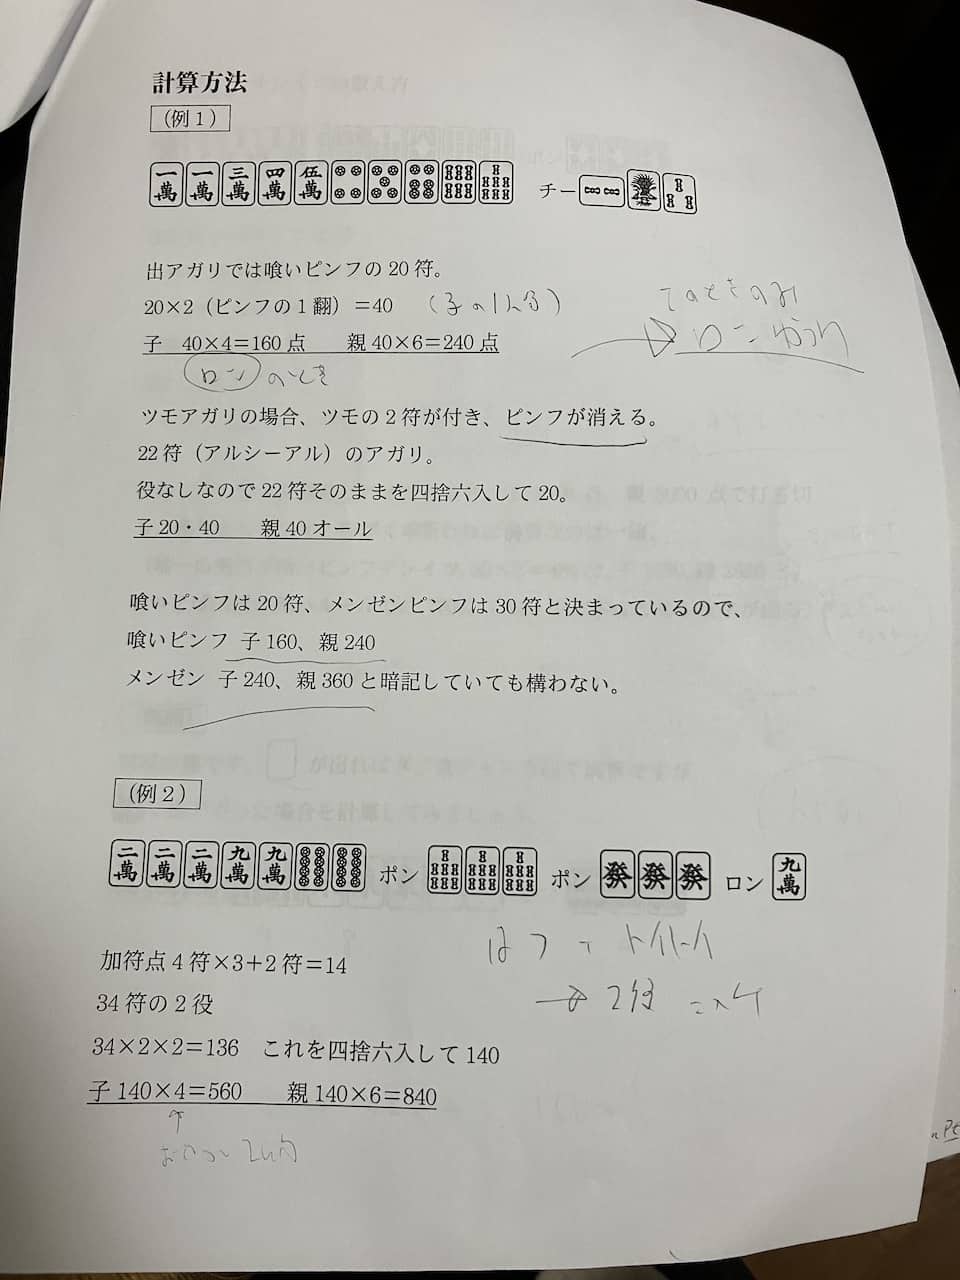 計算方法
（例１）
一萬 一萬 三萬 四萬 伍萬 チー
出アガリでは喰いピンフの20符。
20×2（ピンフの１翻）＝40 （子の1人分）
子 40×4＝160点 親40×6＝240点
ロン のとき
ツモアガリの場合、ツモの２符が付き、ピンフが消える。
22符（アルシーアル）のアガリ。
役なしなので22符そのままを四捨六入して20。
子20・40 親40オール
喰いピンフは20符、メンゼンピンフは30符と決まっているので、
喰いピンフ 子160、親240
メンゼン 子240、親360と暗記していても構わない。
（例２）
二萬 二萬 二萬 九萬 九萬 ポン ポン 發 發 發 ロン 九萬
加符点４符×3＋2符＝14
34符の２役
34×2×2＝136 これを四捨六入して140
子140×4＝560 親140×6＝840